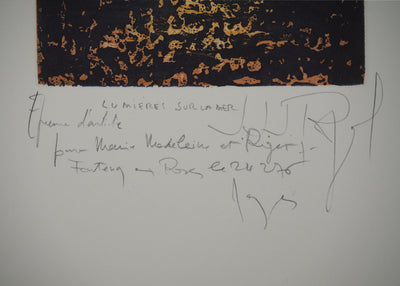 LUMIERES SUR LA MER
Epreuve d'artiste
pour Marie Madeleine et Roger
Fontenay aux Roses le 24 2 76